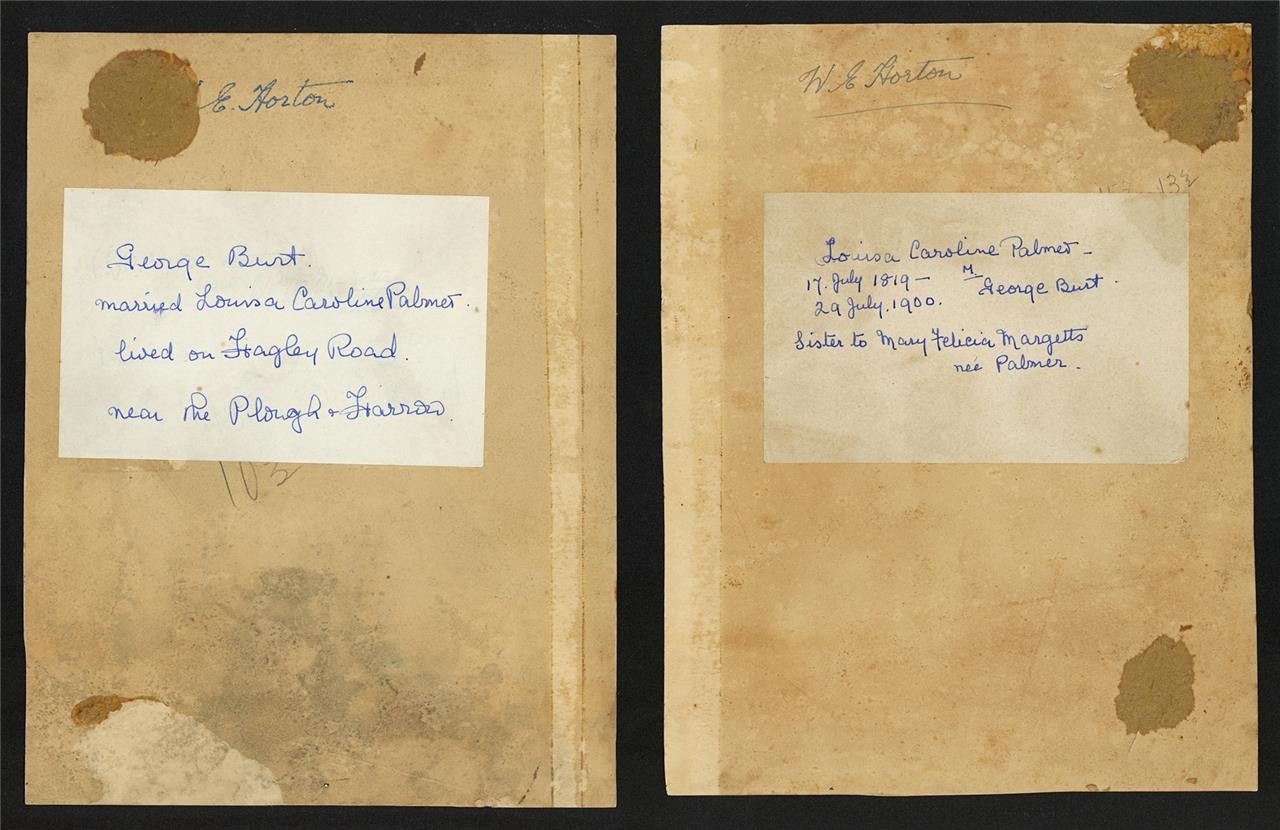 E. Horton
George Burt.
married Louisa Caroline Palmer.
lived on Hagley Road.
near the Plough & Harrow.
W E Horton
13½
Louisa Caroline Palmer –
17. July 1819 – M. George Burt.
29 July. 1900.
Sister to Mary Felicia Margetts
neé Palmer.